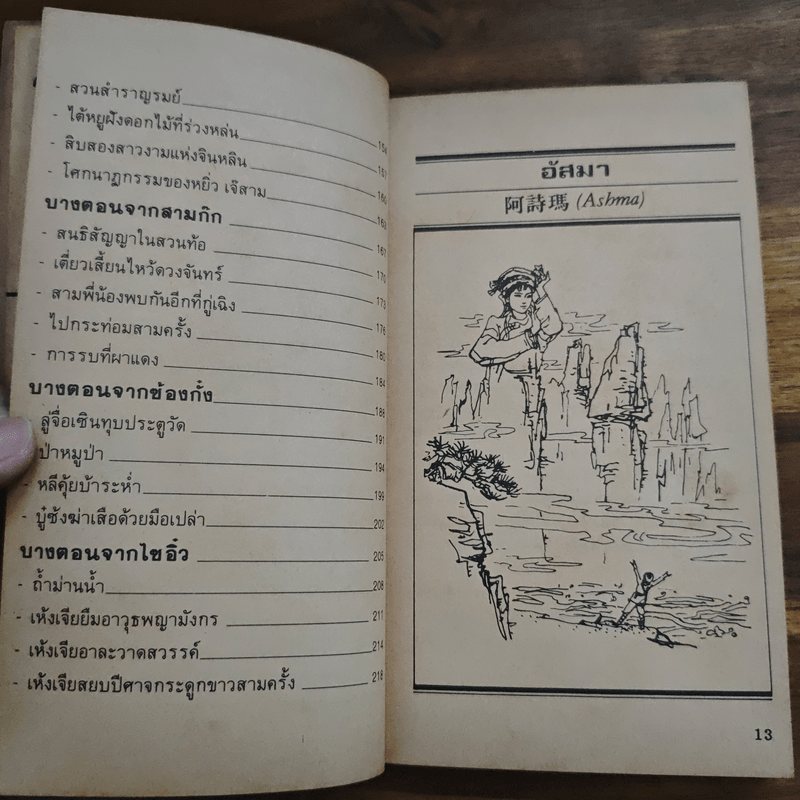 - สวนสำราญรมย์ 154
- ไต้หยูฝังดอกไม้ที่ร่วงหล่น 157
- สิบสองสาวงามแห่งจินหลิน 160
- โศกนาฏกรรมของหยิ่ว เจ๊สาม 163
บางตอนจากสามก๊ก 167
- สนธิสัญญาในสวนท้อ 170
- เตี่ยวเสี้ยนไหว้ดวงจันทร์ 173
- สามพี่น้องพบกันอีกที่กู่เฉิง 176
- ไปกระท่อมสามครั้ง 180
- การรบที่ผาแดง 184
บางตอนจากซ้องกั๋ง 188
- ลู่จื่อเซินทุบประตูวัด 191
ป่าหมูป่า 194
- หลีคุ้ยบ้าระห่ำ 199
- บู๊ซ้งฆ่าเสือด้วยมือเปล่า 202
บางตอนจากไซอิ๋ว 205
- ถ้ำม่านน้ำ 208
- เห้งเจียยืมอาวุธพญามังกร 211
- เห้งเจียอาละวาดสวรรค์ 214
- เห้งเจียสยบปีศาจกระดูกขาวสามครั้ง 218
อัสมา
阿詩瑪 (Ashma)
13